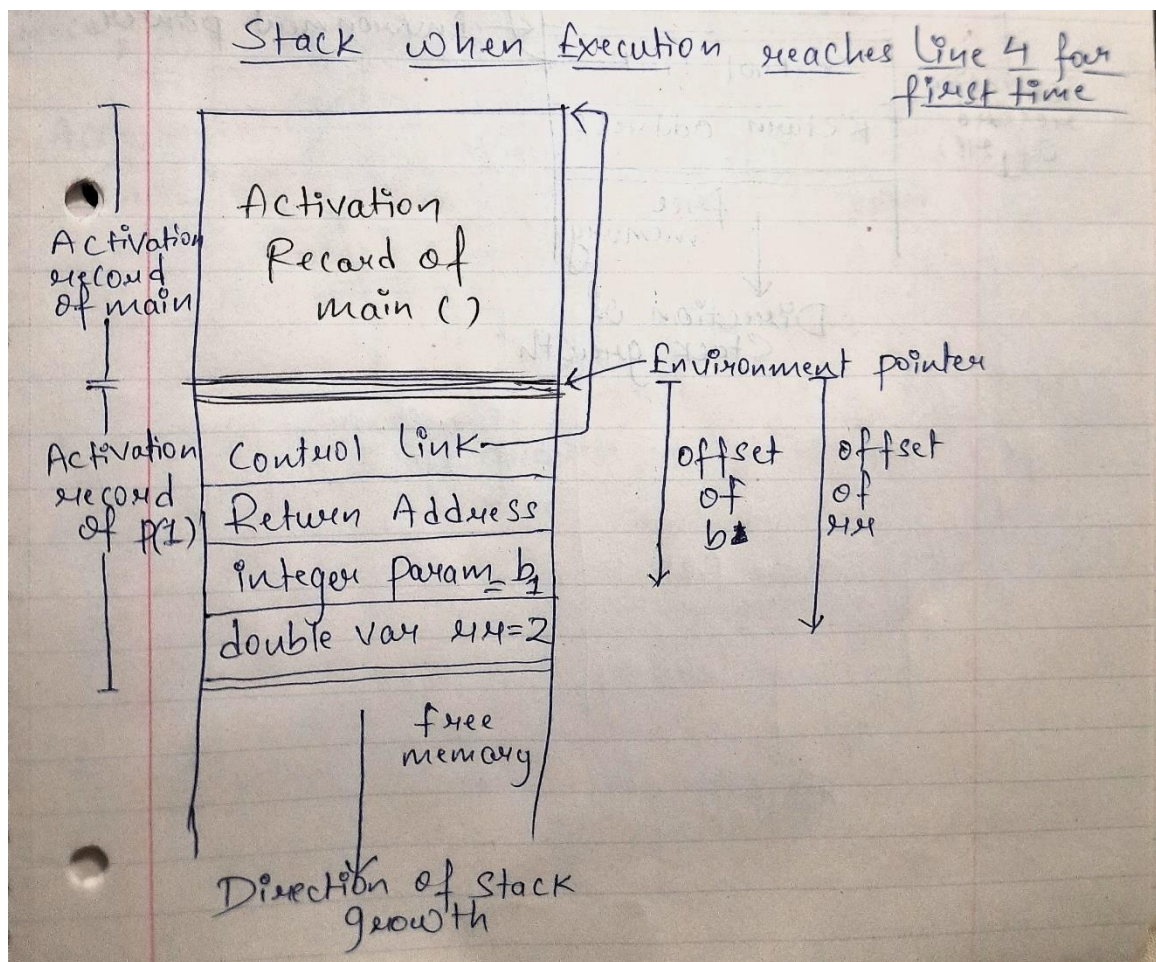 Stack when Execution reaches line 4 for
first time
Activation
record
of main
Activation
Record of
main ()
Environment pointer
Activation
record
of P(1)
Control link
Return Address
integer param b=1
double var rr=2
offset
of
b
offset
of
rr
free
memory
Direction of stack
growth